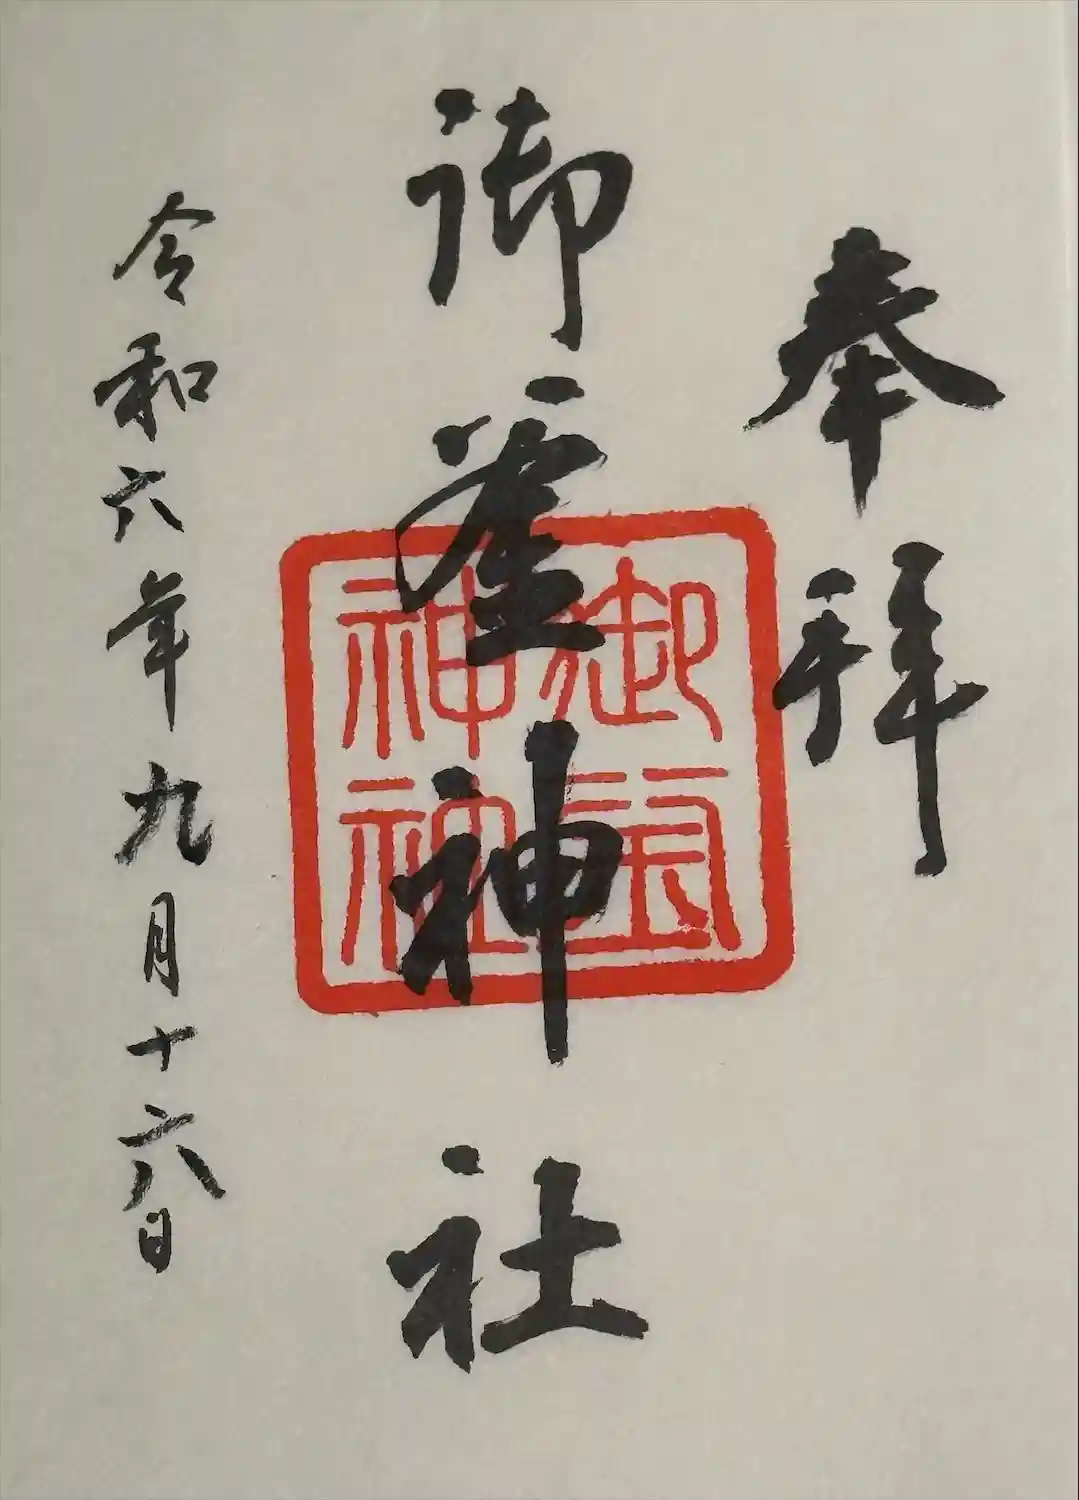 奉拝
御釜神社
令和六年九月十六日
御釜
神社